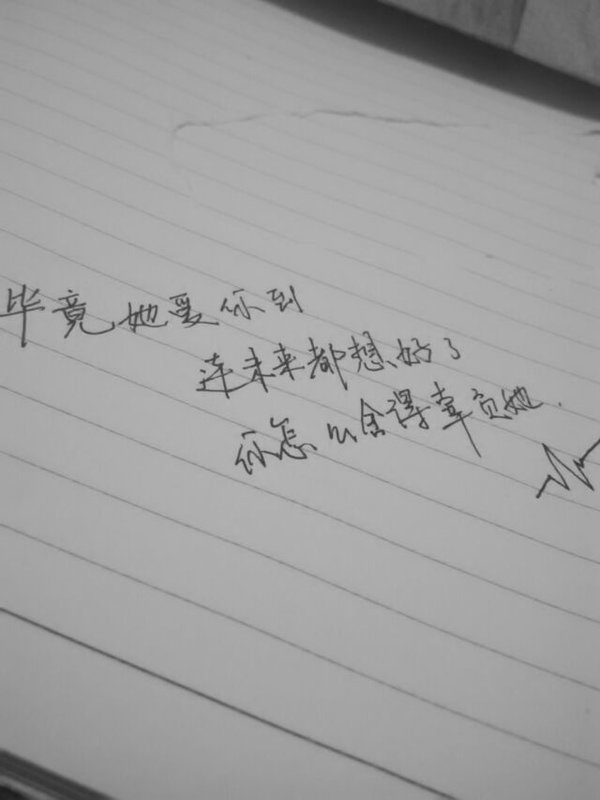 毕竟她爱你到
连未来都想好了
你怎么舍得辜负她.